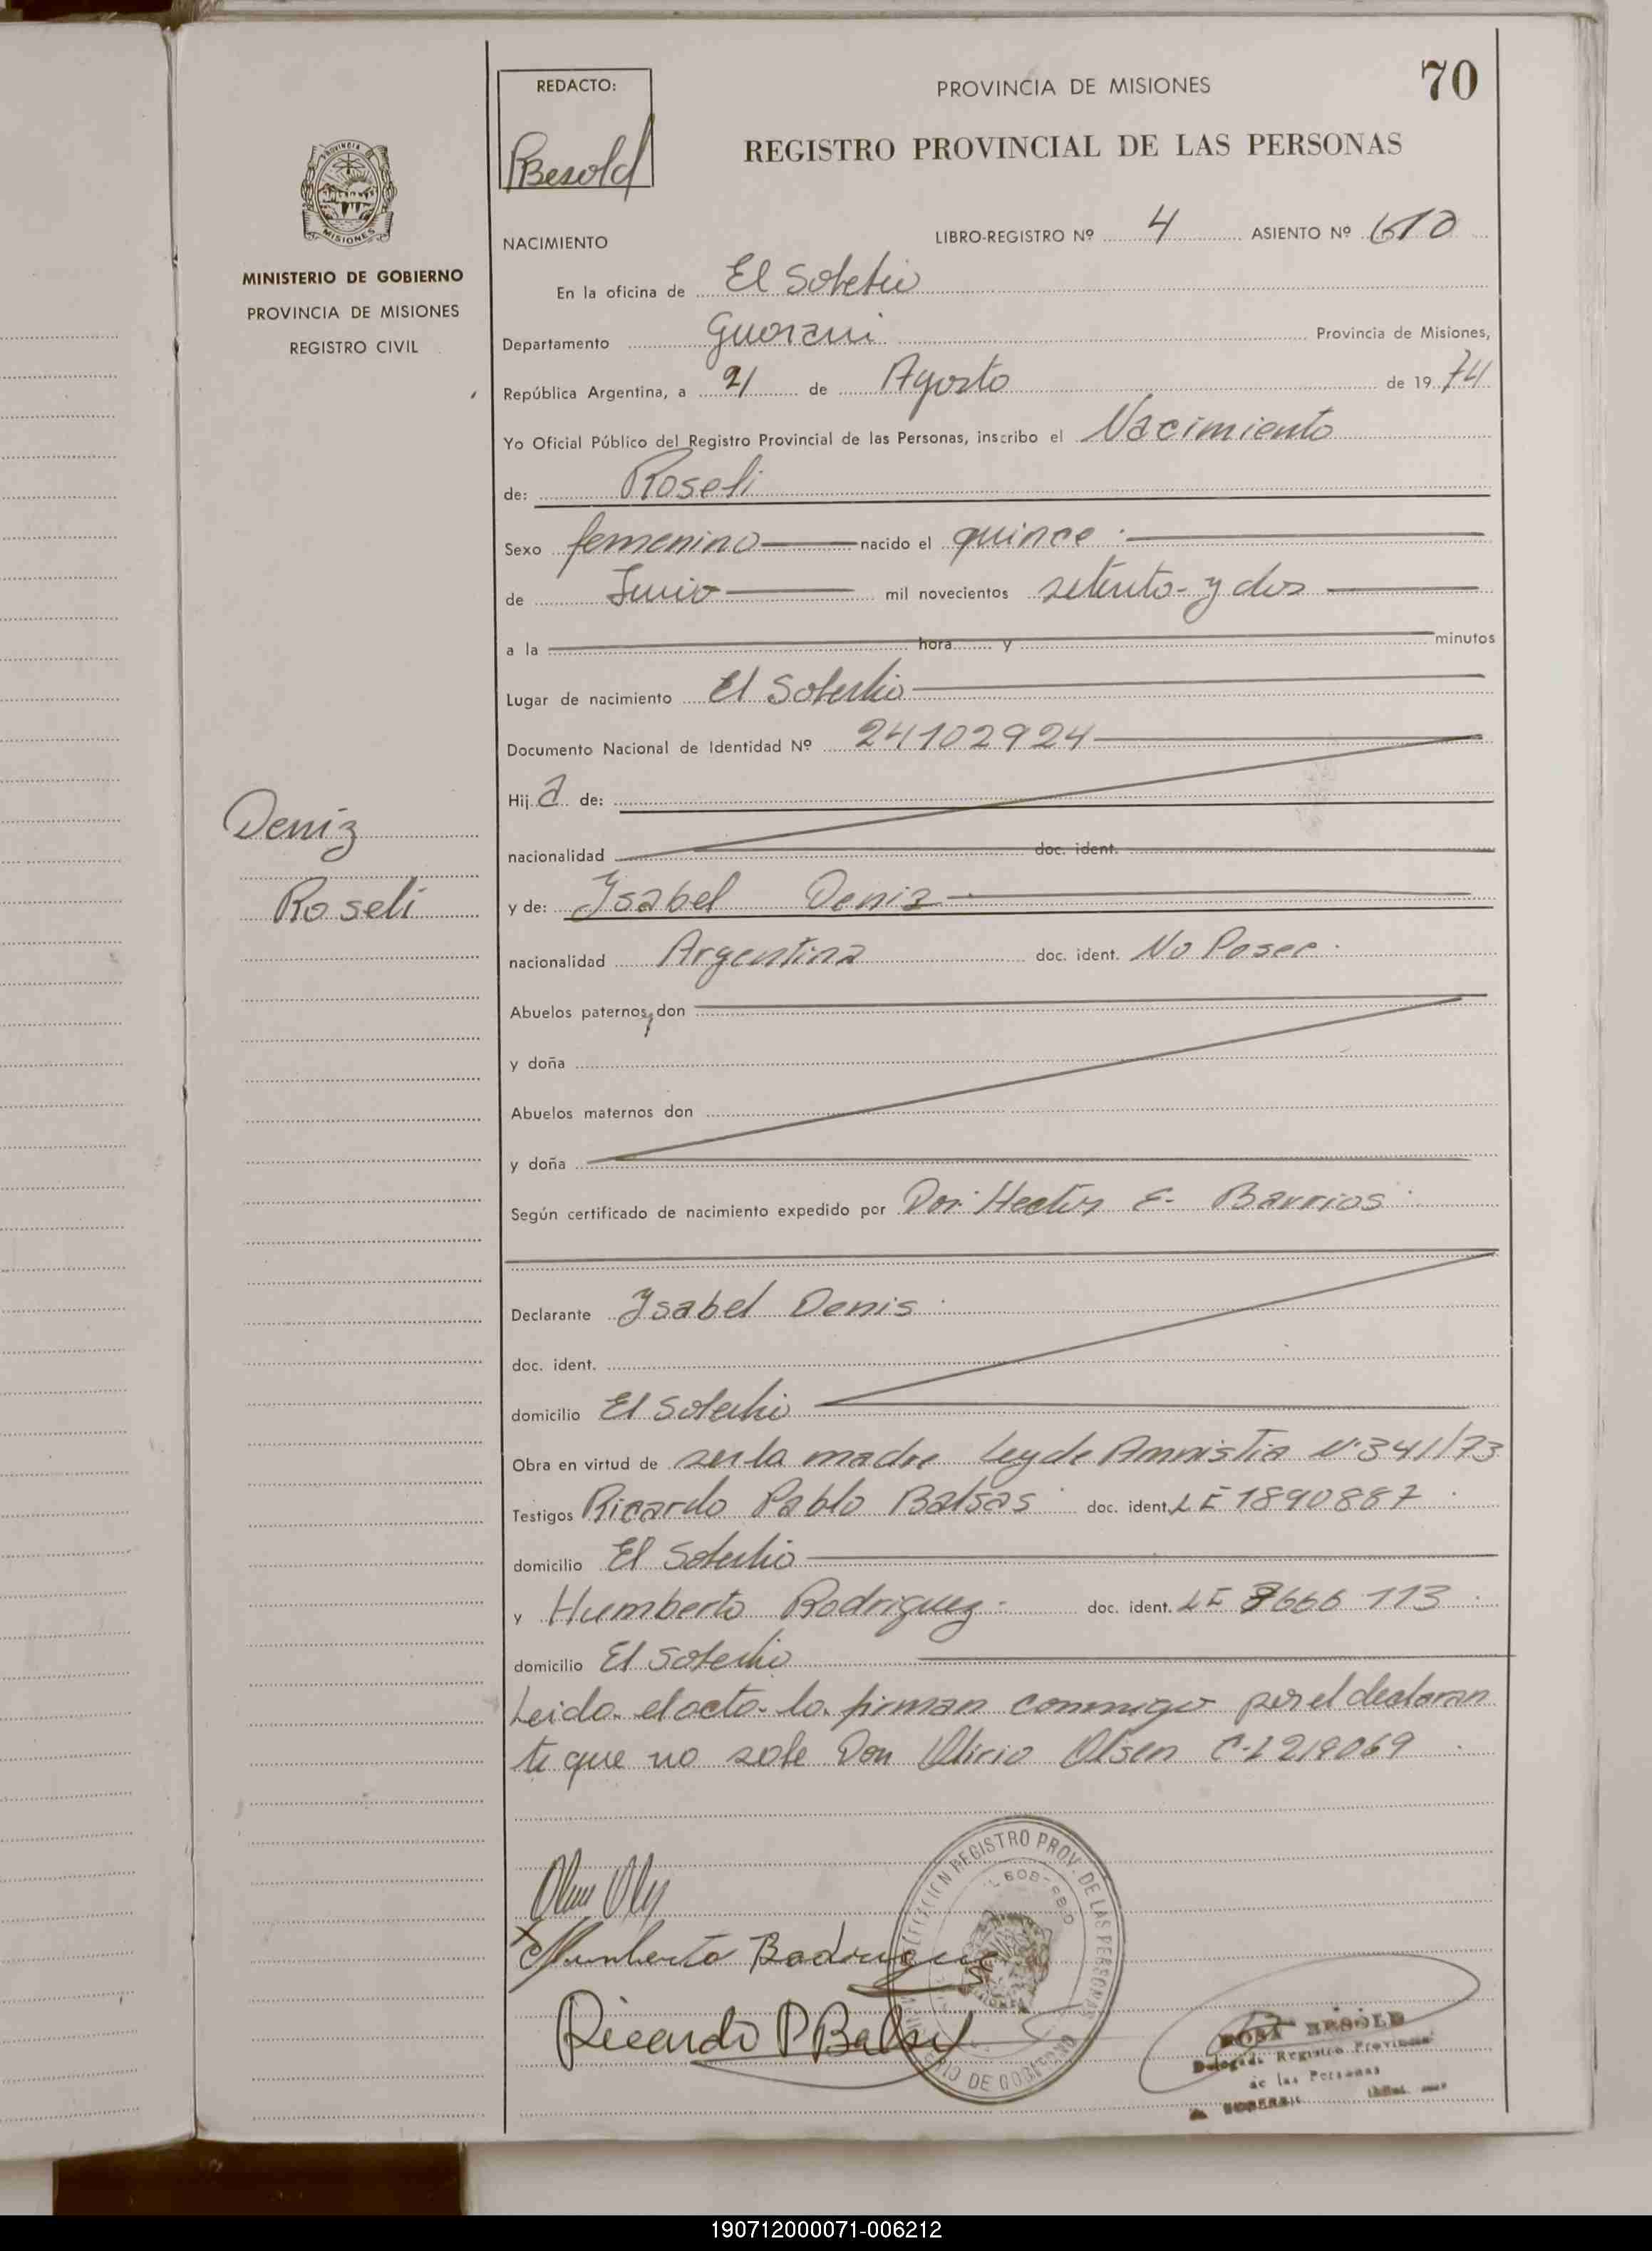 70
REDACTO:
PBesold
PROVINCIA DE MISIONES
REGISTRO PROVINCIAL DE LAS PERSONAS
PROVINCIA DE
MISIONES
MINISTERIO DE GOBIERNO
PROVINCIA DE MISIONES
REGISTRO CIVIL
NACIMIENTO
LIBRO-REGISTRO Nº 4 ASIENTO Nº 610
En la oficina de El Soberbio
Departamento Guarani Provincia de Misiones,
República Argentina, a 21 de Agosto de 1974
Yo Oficial Público del Registro Provincial de las Personas, inscribo el Nacimiento
de: Roseli
Sexo femenino nacido el quince
de Junio mil novecientos setenta y dos
a la hora y minutos
Lugar de nacimiento El Soberbio
Documento Nacional de Identidad Nº 24102924
Hija de:
nacionalidad doc. ident.
Deniz
Roseli
y de: Ysabel Deniz
nacionalidad Argentina doc. ident. No Posee
Abuelos paternos, don
y doña
Abuelos maternos don
y doña
Según certificado de nacimiento expedido por Don Hector E. Barrios
Declarante Ysabel Denis
doc. ident.
domicilio El Soberbio
Obra en virtud de ser la madre Ley de Amnistia Nº 341/73
Testigos Ricardo Pablo Balsas doc. ident. LE 1890887
domicilio El Soberbio
y Humberto Rodriguez doc. ident. LE 666 113
domicilio El Soberbio
Leida el acta la firman conmigo por el declaran
te que no sabe Don Olirio Olsen C.I 219069
Humberto Rodrigue
Ricardo P Balsas
DIRECCION REGISTRO PROV. DE LAS PERSONAS
MINISTERIO DE GOBIERNO
ROSA BESOLD
Delegada Registro Provincial
de las Personas
190712000071-006212